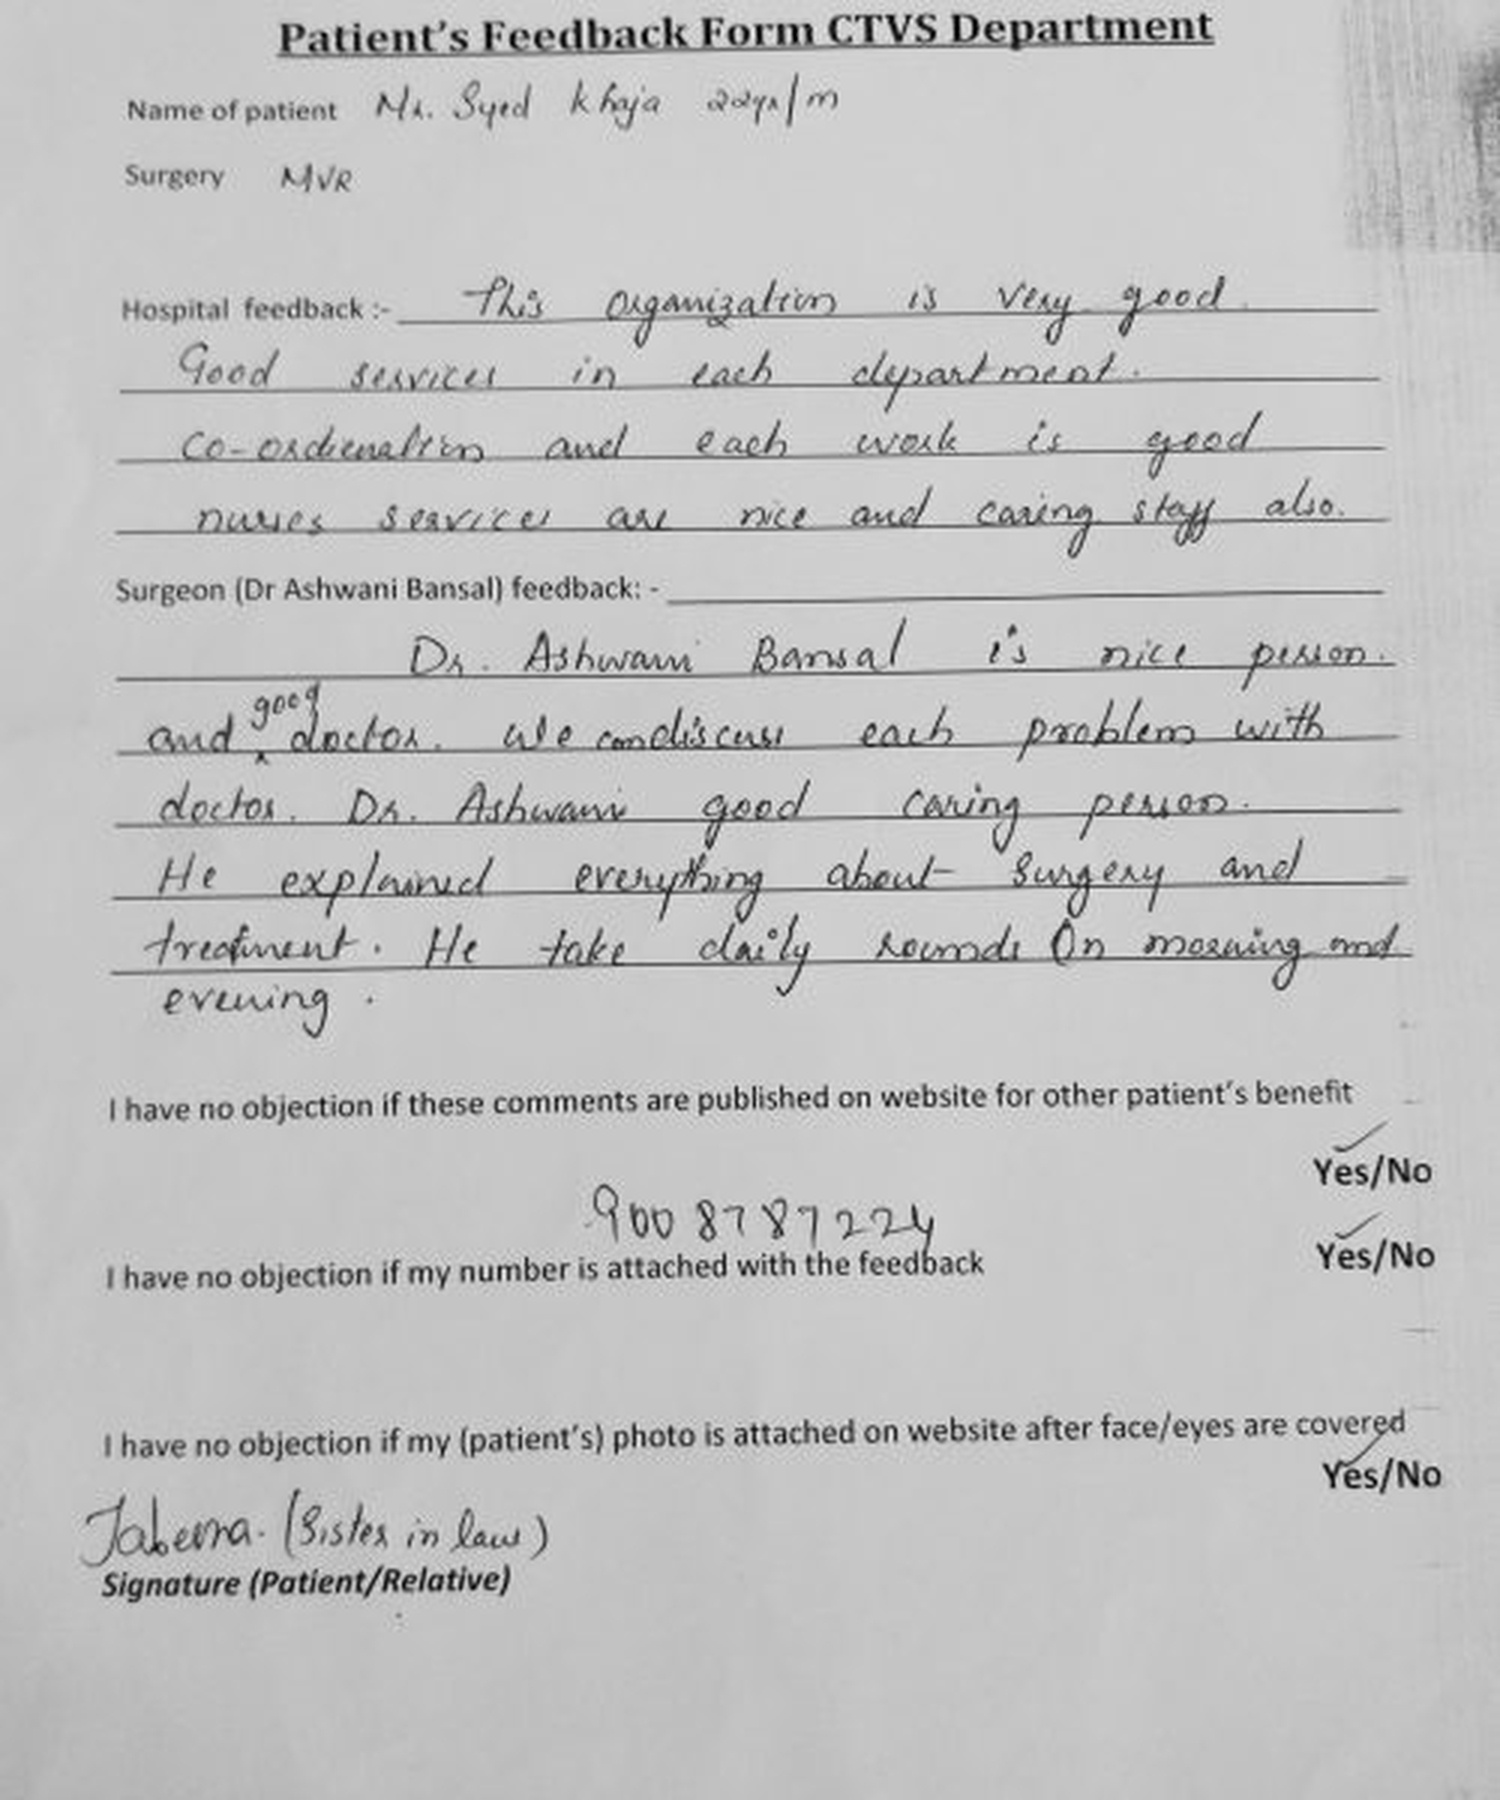 Patient's Feedback Form CTVS Department
Name of patient Mr. Syed Khaja 22yr/m
Surgery MVR
Hospital feedback :- This organization is very good.
Good services in each department.
co-ordienation and each work is good
nurses services are nice and caring staff also.
Surgeon (Dr Ashwani Bansal) feedback: -
Dr. Ashwani Bansal is nice person.
and good doctor. We can discuss each problem with
doctor. Dr. Ashwani good caring person.
He explained everything about surgery and
treatment. He take daily rounds On morning and
evening.
I have no objection if these comments are published on website for other patient's benefit
Yes/No
9008787224
I have no objection if my number is attached with the feedback Yes/No
I have no objection if my (patient's) photo is attached on website after face/eyes are covered
Yes/No
(Sister in law)
Signature (Patient/Relative)